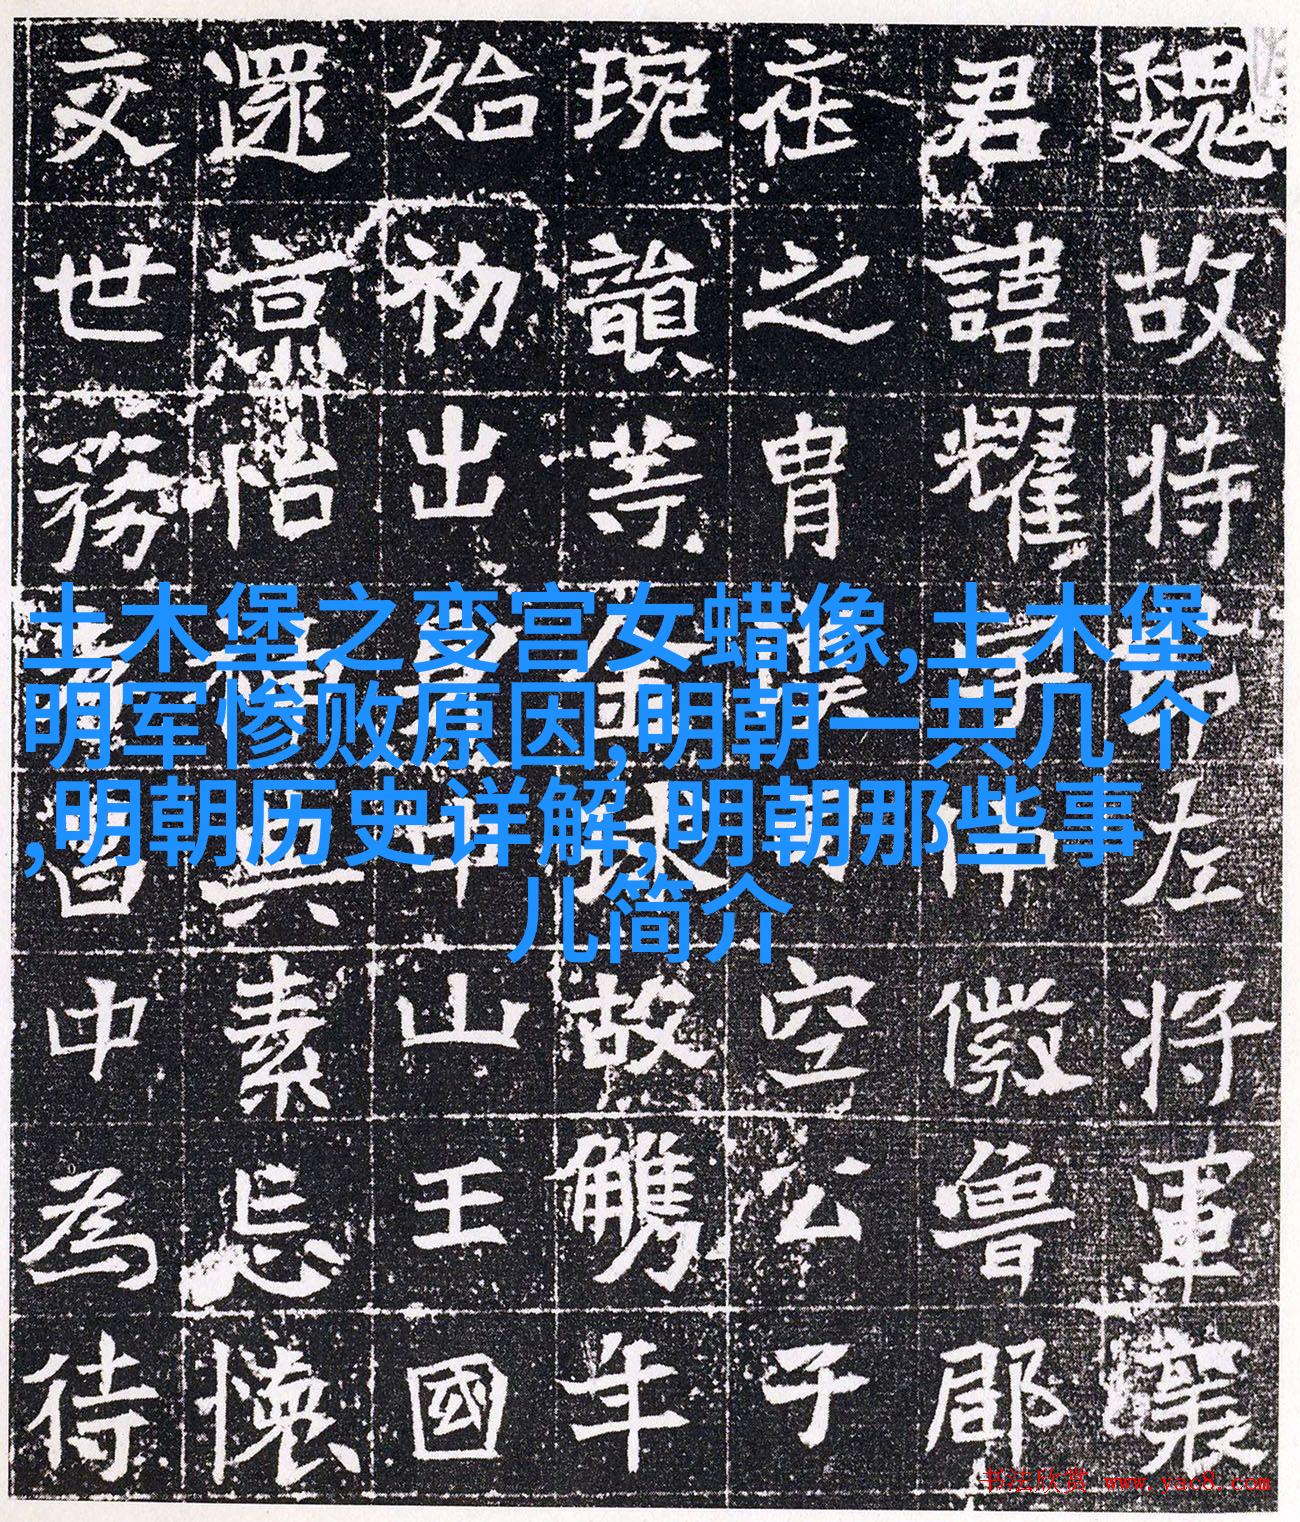 土木堡之变宫女蜡像,土木堡
明军惨败原因,明朝一共几个
,明朝历史详解,明朝那些事
儿简介
魏故持左將軍襄
君諱耀字徽魯郡
在之胄空公子
琬韻等故觹年
始初出中山王國
還京怡素忘懷
交世務中為待
书法欣赏 www.yac8.com